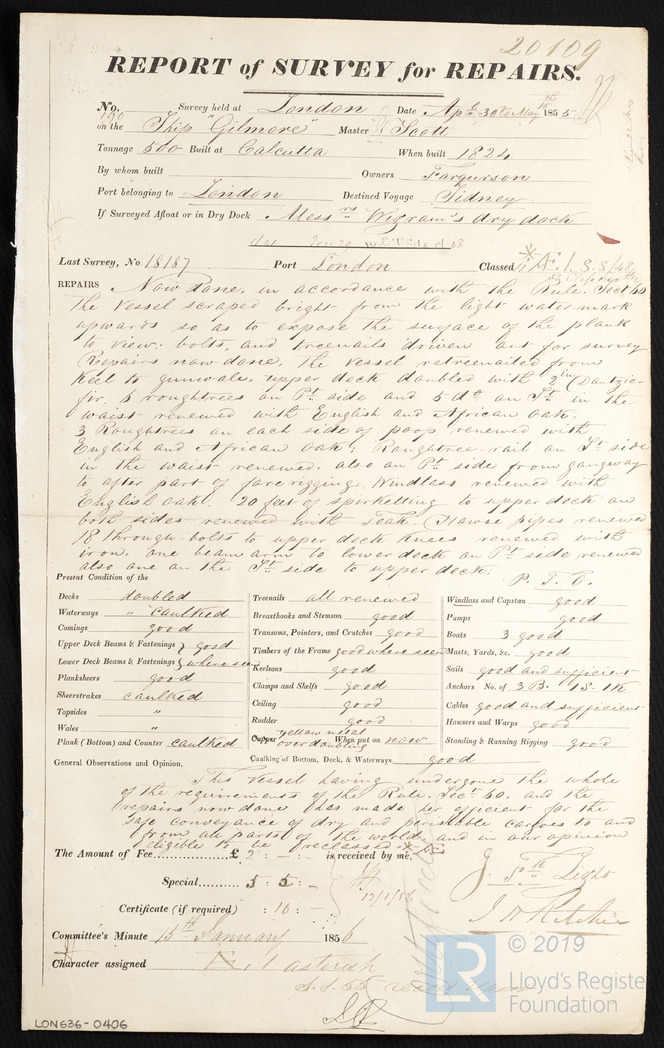 20109
REPORT of SURVEY for REPAIRS.
No. Survey held at London Date Apl 30 to May 15th 1855
on the Ship "Gilmore" Master W Scott
Tonnage 500 Built at Calcutta When built 1824
By whom built Owners Fargurson
Port belonging to London Destined Voyage Sidney
If Surveyed Afloat or in Dry Dock Messrs Wigram's dry dock
Last Survey, No. 18187 Port London Classed
REPAIRS Now done, in accordance with the Rule. Sect 60
The Vessel scraped bright from the light water mark
upwards so as to expose the surface of the plank
to view. bolts, and treenails driven out for survey
Repairs now done, The Vessel retreenailed from
Keel to gunwale, upper deck doubled with 2 in Dantzic
fir, 6 roughtrees on Pt side and 5 do on St in the
waist renewed with English and African oak.
3 Roughtrees on each side of poop renewed with
English and African oak; Roughtree rail on St side
in the waist renewed. also on Pt side from gangway
to after part of fore rigging. Windlass renewed with
English oak. 20 feet of spirketting to upper deck on
both sides renewed with Teak. Hawse pipes renewed
18 through bolts to upper deck knees renewed with
iron. one beam arm to lower deck on Pt side renewed
also one on the St side to upper deck.
P. T. O.
Present Condition of the
Decks doubled
Waterways " caulked
Comings good
Upper Deck Beams & Fastenings } good
Lower Deck Beams & Fastenings } where seen
Planksheers good
Sheerstrakes caulked
Topsides "
Wales "
Plank (Bottom) and Counter caulked
Treenails all renewed
Breasthooks and Stemson good
Transoms, Pointers, and Crutches good
Timbers of the Frame good where seen
Keelsons good
Clamps and Shelfs good
Ceiling good
Rudder good
Copper yellow metal over doubling When put on now
Caulking of Bottom, Deck, & Waterways good
Windlass and Capstan good
Pumps good
Boats 3 good
Masts, Yards, &c. good
Sails good and sufficient
Anchors No. of 3 B. 1 S. 1 K
Cables good and sufficient
Hawsers and Warps good
Standing & Running Rigging good
General Observations and Opinion,
This Vessel having undergone the whole
of the requirements of the Rule. Sect 60. and the
repairs now done has made her efficient for the
safe conveyance of dry and perishable cargoes to and
from all parts of the world, and in our opinion
eligible to be reclassed
The Amount of Fee £ 2 : - : - is received by me,
Special 5 : 5 : -
12/1/56
Certificate (if required) : 10 : -
J. Light
J H Ritchie
Committee's Minute 15th January 1856
Character assigned asterisk
LON636-0406
LR
© 2019
Lloyd's Registe
Foundation